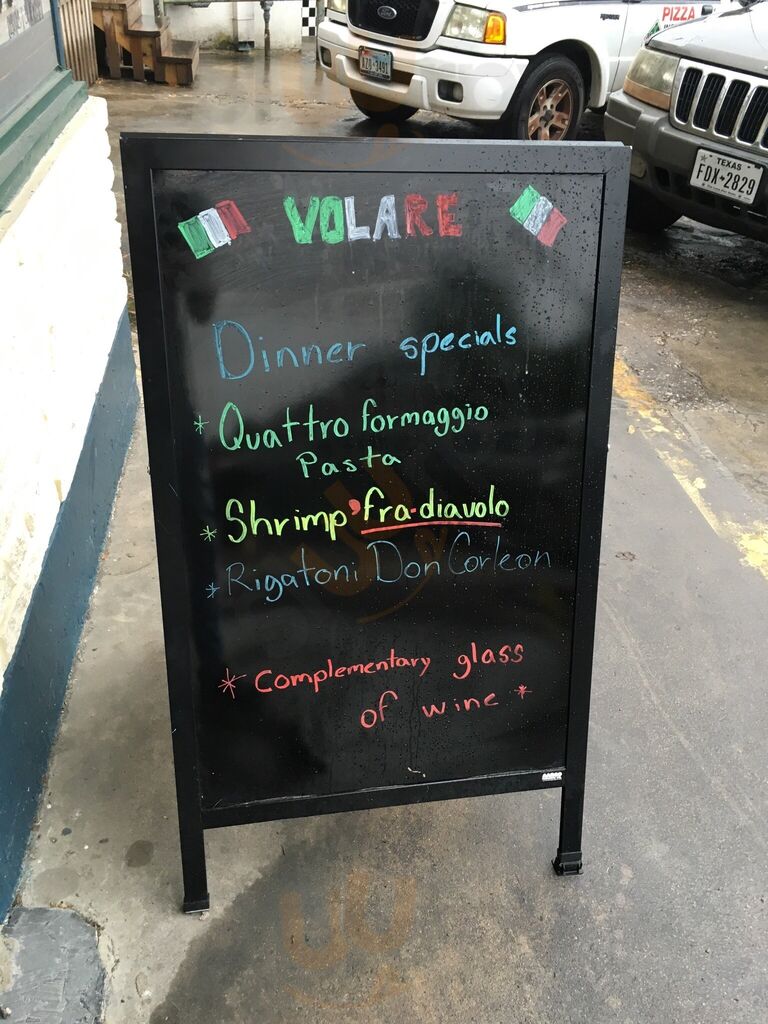 PIZZA
TEXAS
FDX-2829
VOLARE
Dinner specials
* Quattro formaggio
Pasta
* Shrimp "fra-diavolo
* Rigatoni Don Corleon
* Complementary glass
of wine *